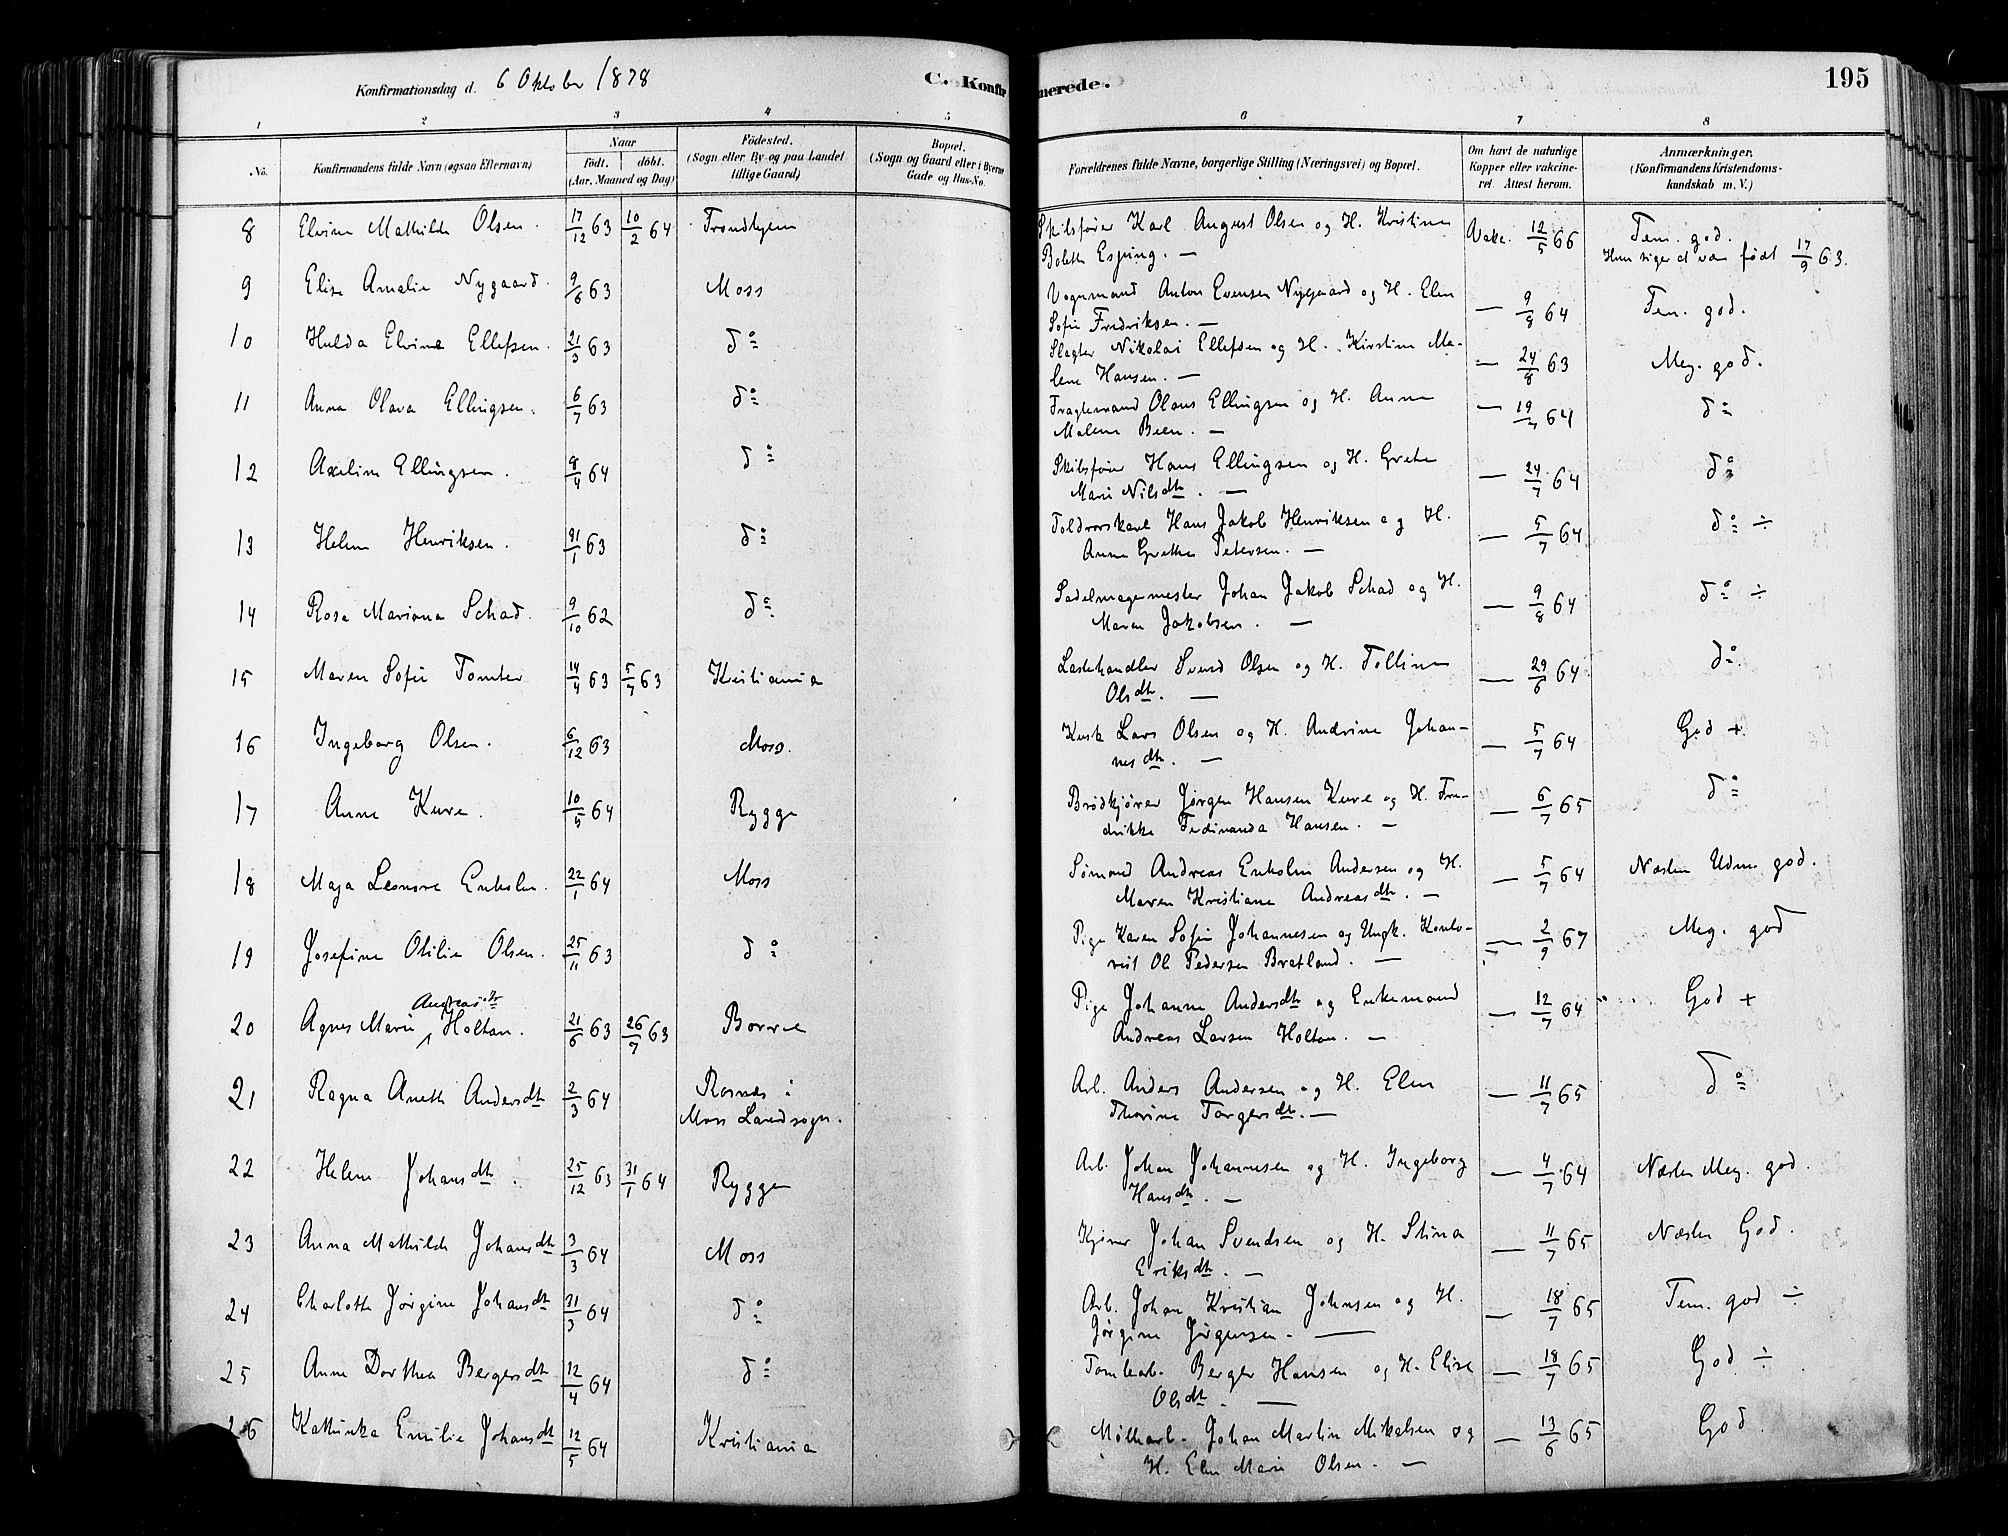 Konfirmationsdag d. 6 Oktober 1878 C. Konfirmerede. 195
1 2 3 4 5 6 7 8
No. Konfirmandens fulde Navn (ogsaa Efternavn) Naar født. døbt. (Aar, Maaned og Dag) Födested. (Sogn eller By og paa Landet tillige Gaard) Bopæl. (Sogn og Gaard eller i Byerne Gade og Hus-No. Forældrenes fulde Navne, borgerlige Stilling (Næringsvei) og Bopæl. Om havt de naturlige Kopper eller vakcineret. Attest herom. Anmærkninger. (Konfirmandens Kristendomskundskab m. V.)
8 Elvine Mathilde Olsen. 17/12 63 10/2 64 Trondhjem Skibsfører Karl August Olsen og H. Kristine Vakc. 12/5 66 Tem. god.
Bolette Esping. — Hun siger at være født 17/9 63.
9 Elise Amalie Nygaard. 9/6 63 Moss Vognmand Anton Evensen Nygaard og H. Elen — 9/8 64 Tem. god.
Sofie Fredriksen. —
10 Hulda Elvine Ellefsen. 21/3 63 do Slagter Nikolai Ellefsen og H. Kirstine Ma- — 24/8 63 Meg. god.
lene Hansen. —
11 Anna Olava Ellingsen. 6/7 63 do Fragtemand Olaus Ellingsen og H. Anne — 19/7 64 do
Malene Been. —
12 Axeline Ellingsen. 8/4 64 do Skibsfører Hans Ellingsen og H. Grethe — 24/7 64 do
Marie Nilsdtr. —
13 Helene Henriksen. 31/1 63 do Toldrorskarl Hans Jakob Henriksen og H. — 5/7 64 do ÷
Anne Grethe Petersen. —
14 Rosa Mariana Schad. 9/10 62 do Sadelmagermester Johan Jakob Schad og H. — 9/8 64 do ÷
Maren Jakobsen. —
15 Maren Sofie Tomter 14/4 63 5/7 63 Kristiania Lastehandler Svend Olsen og H. Tolline — 29/6 64 do
Olsdtr. —
16 Ingeborg Olsen. 6/12 63 Moss. Kusk Lars Olsen og H. Andrine Johan- — 5/7 64 God +
nesdtr. —
17 Anne Kure. 10/5 64 Rygge Brødkjører Jørgen Hansen Kure og H. Fre- — 6/7 65 do
drikke Ferdinanda Hansen. —
18 Maja Leonore Enholm. 22/1 64 Moss Sømand Andreas Enholm Andersen og H. — 5/7 64 Næsten Udm. god.
Maren Kristiane Andreasdtr. —
19 Josefine Otilie Olsen. 25/11 63 do Pige Karen Sofie Johannesen og Ungk. Konto- — 2/9 67 Meg. god
rist Ole Pedersen Bratland. —
20 Agnes Marie Andreasdtr Holtan. 21/6 63 26/7 63 Borre Pige Johanne Andersdtr og Enkemand — 12/7 64 God +
Andreas Larsen Holtan. —
21 Ragna Anette Andersdtr 2/3 64 Rosnæs i Arb. Anders Andersen og H. Elen — 11/7 65 do
Moss Landsogn. Thorine Torgersdtr. —
22 Helene Johansdtr. 25/12 63 31/1 64 Rygge Arb. Johan Johannesen og H. Ingeborg — 4/7 64 Næsten Meg. god.
Hansdtr. —
23 Anna Mathilde Johansdtr 3/3 64 Moss Kjører Johan Svendsen og H. Stina — 11/7 65 Næsten God.
Eriksdtr. —
24 Charlotte Jørgine Johansdtr 31/3 64 do Arb. Johan Kristian Johnsen og H. — 18/7 65 Tem. god ÷
Jørgine Jørgensen. —
25 Anne Dorthea Bergersdtr 12/4 64 do Tomtearb. Berger Hansen og H. Elise — 18/7 65 God ÷
Olsdtr. —
26 Kathinka Emilie Johansdtr 12/5 64 Kristiania Møllearb. Johan Martin Mikalsen og — 13/6 65 God
H. Elen Marie Olsen. —